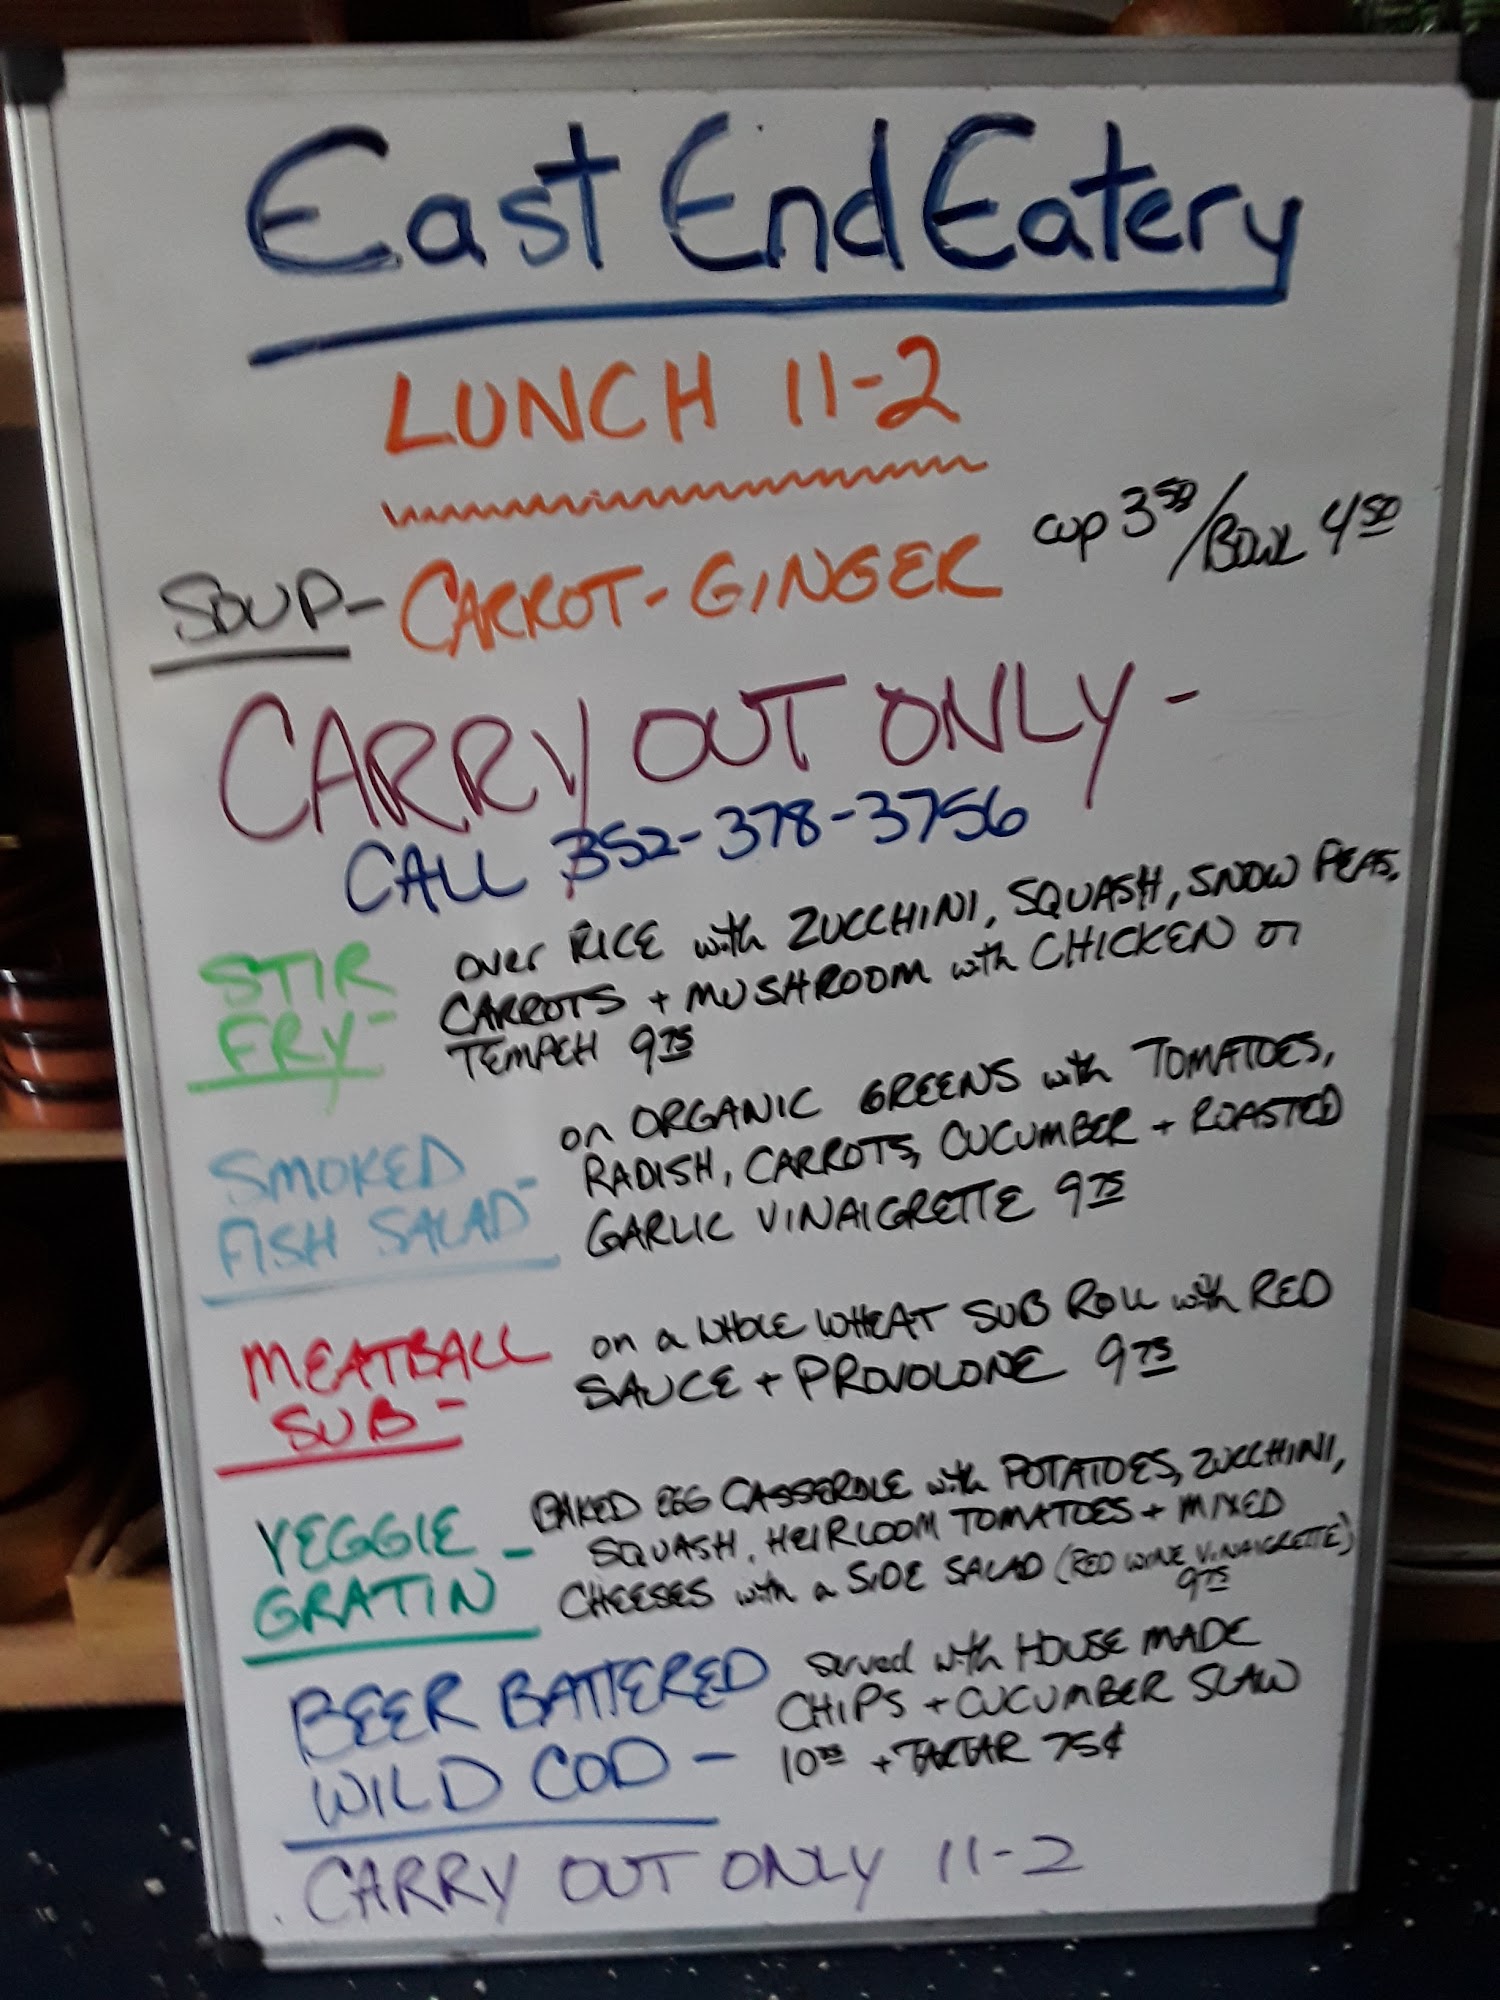 East End Eatery
LUNCH 11-2
SOUP- CARROT-GINGER cup 3 50/BOWL 4 50
CARRY OUT ONLY -
CALL 352-378-3756
STIR FRY- over RICE with ZUCCHINI, SQUASH, SNOW PEAS,
CARROTS + MUSHROOM with CHICKEN or
TEMPEH 9 75
SMOKED FISH SALAD- on ORGANIC GREENS with TOMATOES,
RADISH, CARROTS, CUCUMBER + ROASTED
GARLIC VINAIGRETTE 9 75
MEATBALL SUB- on a WHOLE WHEAT SUB ROLL with RED
SAUCE + PROVOLONE 9 75
VEGGIE GRATIN - BAKED EGG CASSEROLE with POTATOES, ZUCCHINI,
SQUASH, HEIRLOOM TOMATOES + MIXED
CHEESES with a SIDE SALAD (RED WINE VINAIGRETTE)
9 75
BEER BATTERED WILD COD - served with HOUSE MADE
CHIPS + CUCUMBER SLAW
10 75 + TARTAR 75¢
CARRY OUT ONLY 11-2